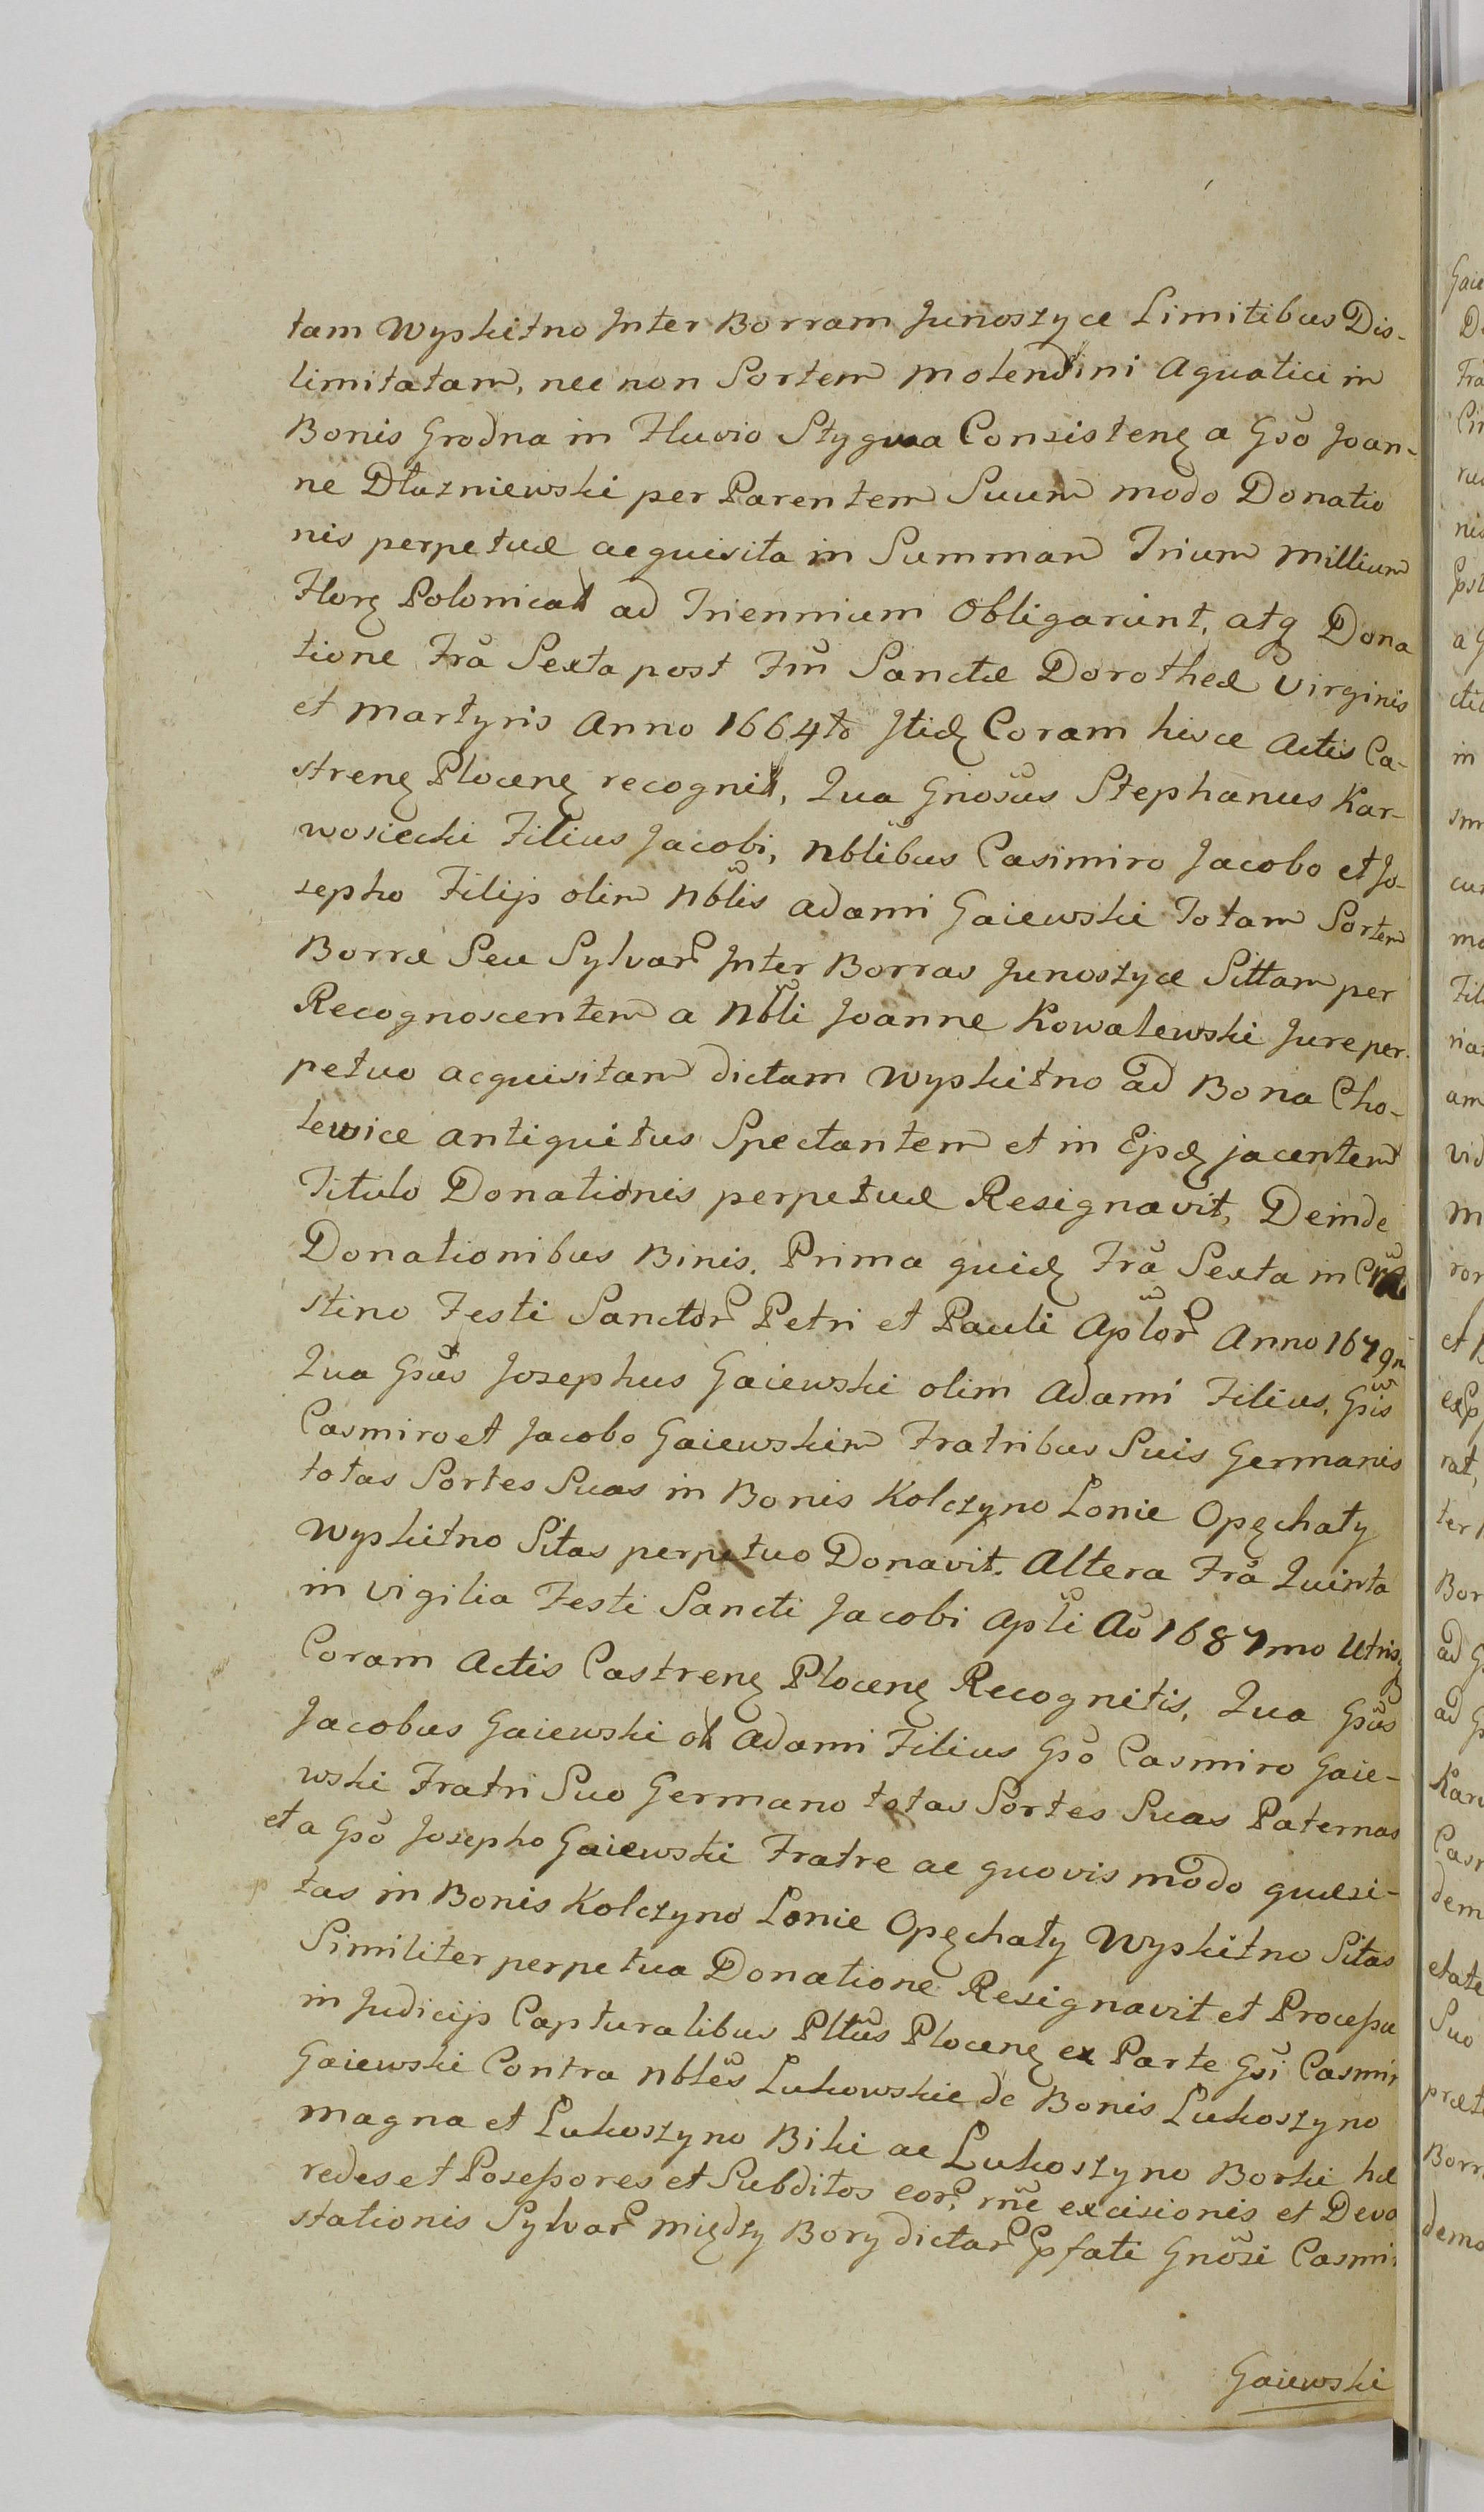 tam Wyskitno Inter Borram Junoszyce Limitibus Dis-
limitatam, nec non Sortem molendini aquatici in
Bonis Grodna in Fluvio Stygwa Consisten̄ a Gsō Joan-
ne Dłuzniewski per Parentem Suum modo Donatio
nis perpetuæ acquisita in Summam Trium millium
Floren̄ Polonical ad Triennium Obligarunt, atq Dona
tione Frā Sexta post Fm̄ Sanctæ Dorotheæ Virginis
et martyris Anno 1664to Itid Coram hisce Actis Ca-
stren̄ Plocen̄ recognit, Qua Gnosūs Stephanus Kar-
wosiecki Filius Jacobi, Nblībus Casimiro Jacobo et Jo-
sepho Filijs olim Nblīs Adami Gaiewski Totam Sortem
Borræ Seu Sylvar Inter Borras Junoszyce Sittam per
Recognoscentem a Nblī Joanne Kowalewski Jure per-
petuo acquisitam dictam Wyskitno ad Bona Cho-
lewice antiquitus Spectantem et in Ejsd jacentem
Titulo Donationis perpetuæ Resignavit, Deinde
Donationibus Binis. Prima quid Frā Sexta in
stino Festi Sanctor Petri et Pauli Aplor Anno 1679n
Qua Gsūs Josephus Gaiewski olim Adami Filius, Gsīs
Casmiro et Jacobo Gaiewskim Fratribus Suis Germanis
totas Sortes Suas in Bonis Kolczyno Lonie Opęchaty
Wyskitno Sitas perpetuo Donavit. Altera Frā Quinta
in vigilia Festi Sancti Jacobi Aplī Aō 1687mo Utrisq
Coram Actis Castren̄ Plocen̄ Recognitis, Qua Gsūs
Jacobus Gaiewski ol Adami Filius Gsō Casmiro Gaie-
wski Fratri Suo Germano totas Sortes Suas Paternas
et a Gsō Josepho Gaiewski Fratre ac quovis modo quæsi-
tas in Bonis Kolczyno Lonie Opęchaty Wyskitno Sitas
Similiter perpetua Donatione Resignavit et Processu
in Judicijs Capturalibus Pltūs Plocen̄ ex Parte Gsī Casmir
Gaiewski Contra Nblēs Lukowskie de Bonis Lukoszyno
magna et Lukoszyno Biki ac Lukoszyno Borki hæ
redes et Possessores et Subditos eor, rn̄e excisionis et Deva
stationis Sylvar między Bory dictar Pfati Gnōsi Casmir
Gaiewski